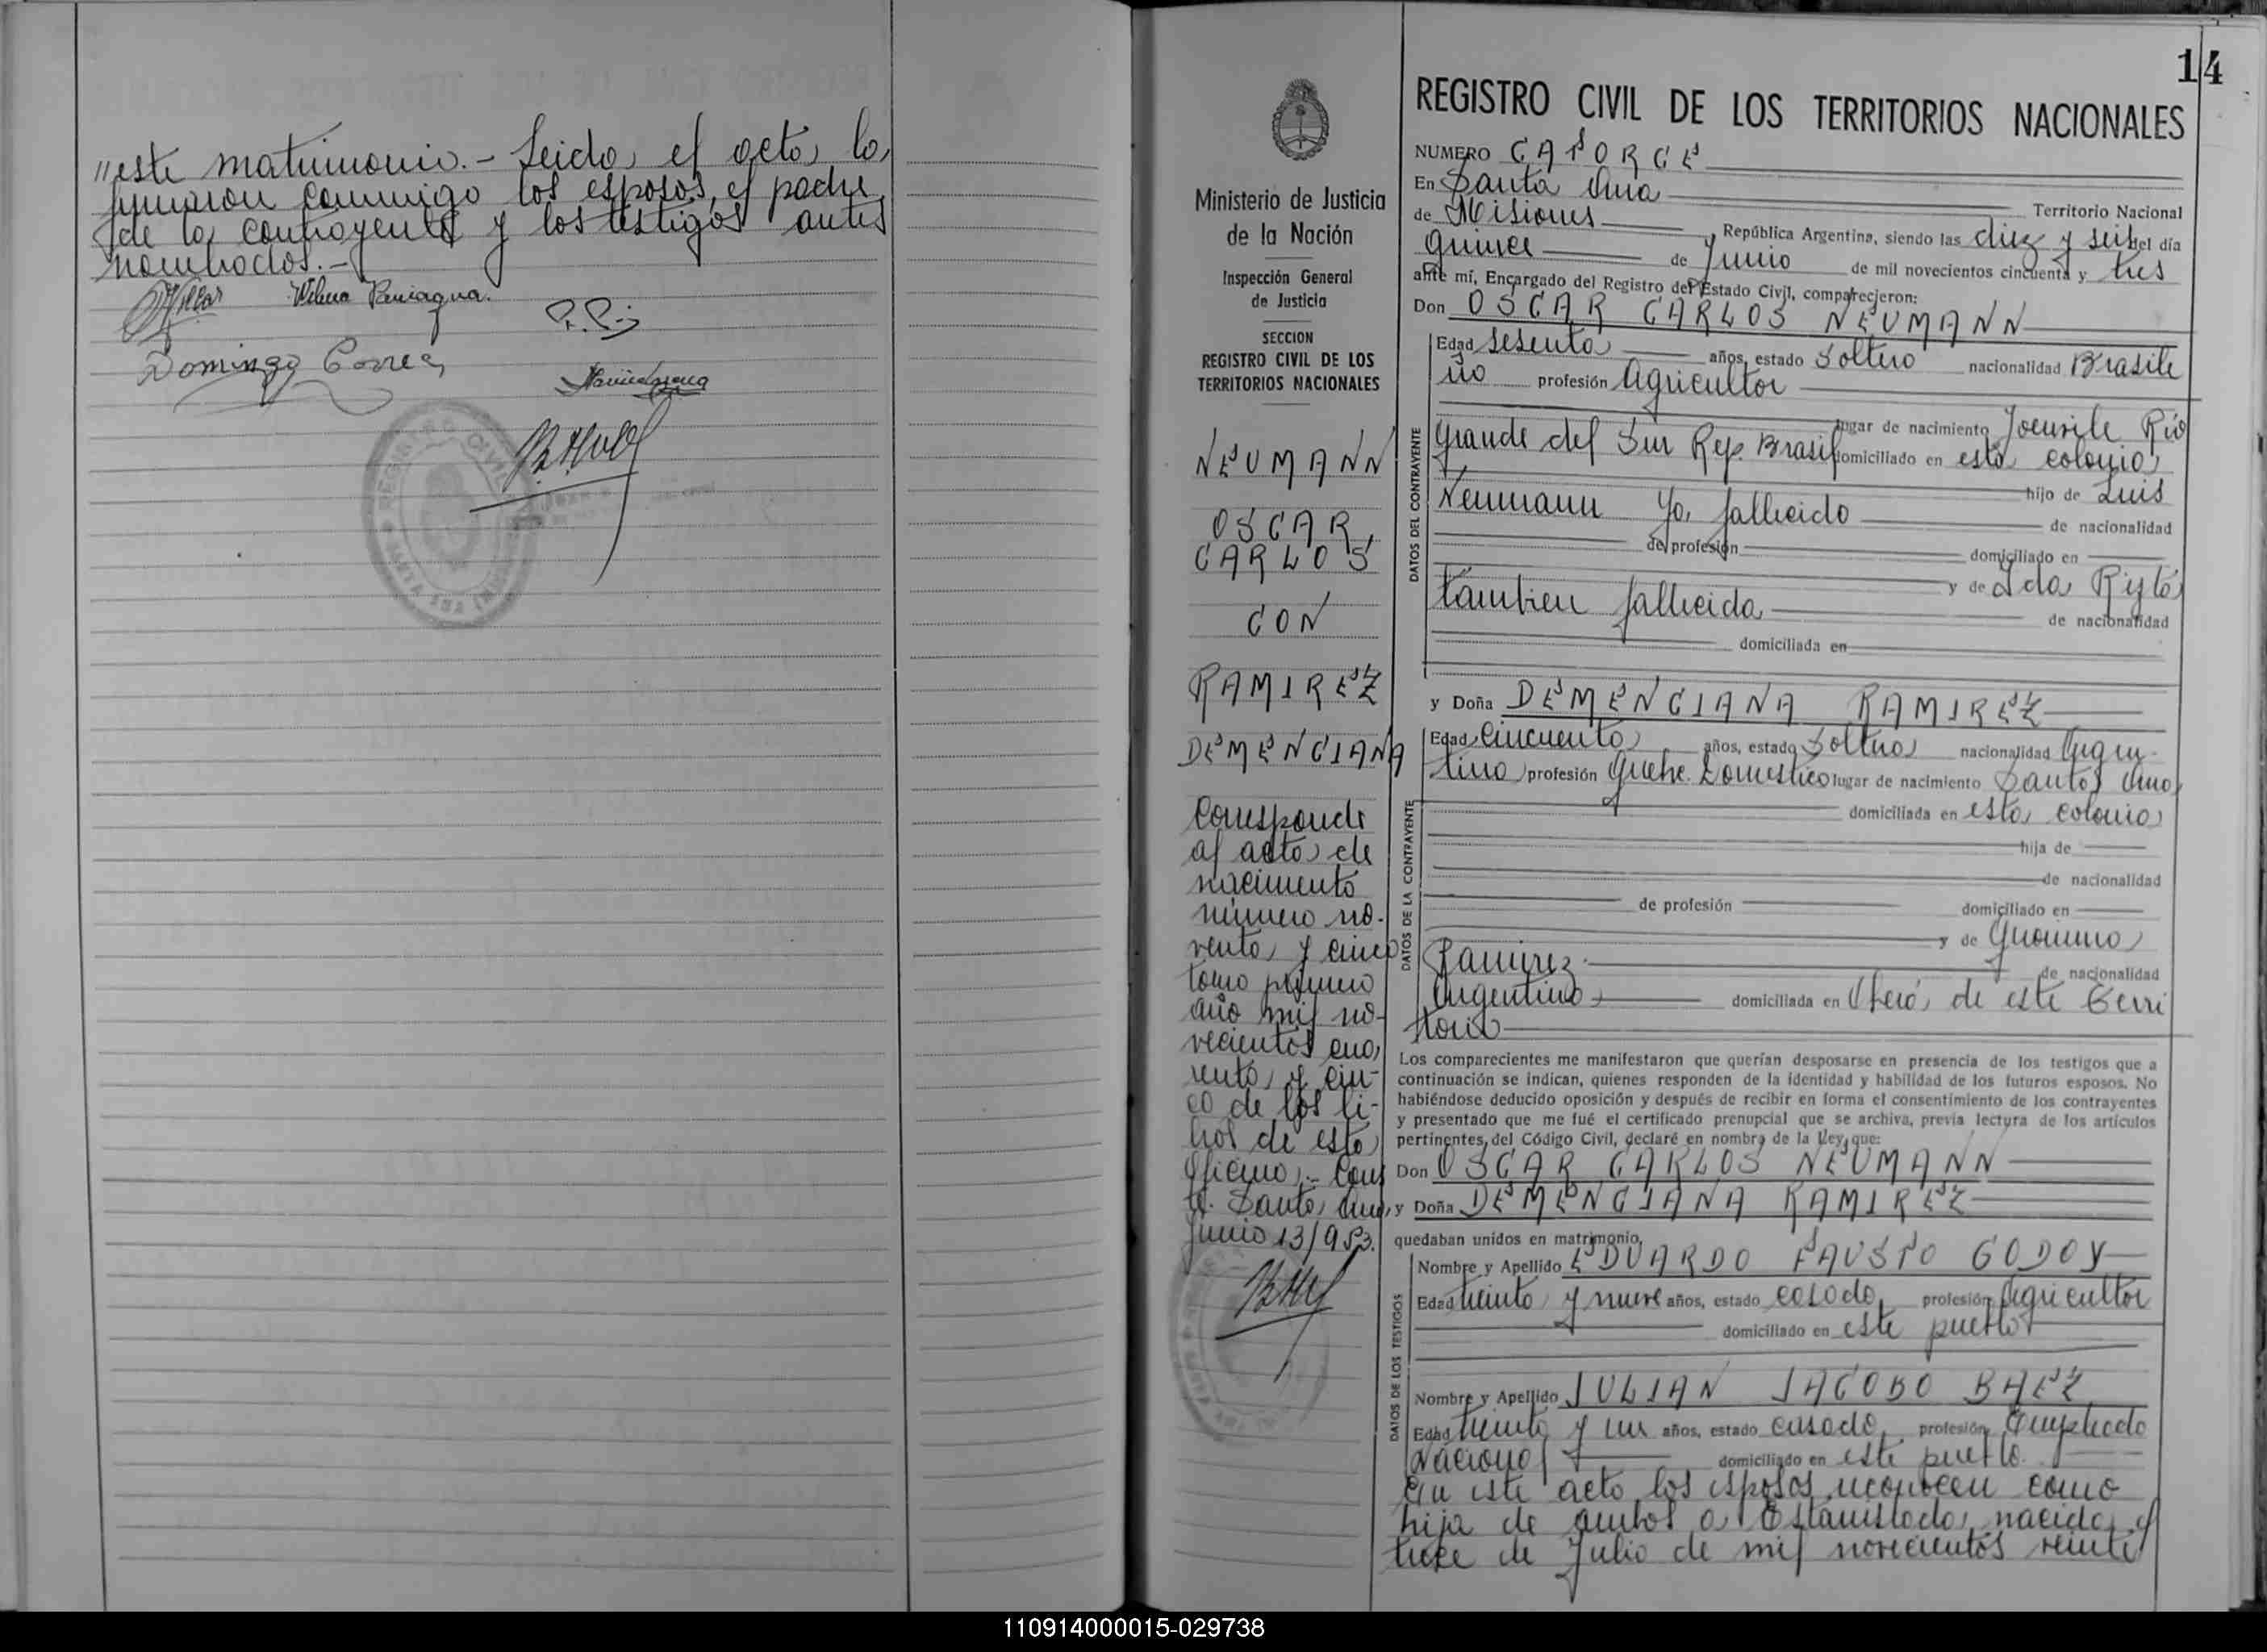 "este matrimonio.- Leida el acta, la
firmaron conmigo los esposos, el padre
de la contrayente y los testigos antes
nombrados.-
Wilma Paniagua.
Domingo Correa
14
REGISTRO CIVIL DE LOS TERRITORIOS NACIONALES
Ministerio de Justicia
de la Nación
Inspección General
de Justicia
SECCION
REGISTRO CIVIL DE LOS
TERRITORIOS NACIONALES
NEUMANN
OSCAR,
CARLOS
CON
RAMIREZ
DEMENCIANA
Corresponde
al acta de
nacimiento
número no-
venta y cinco
tomo primero
año mil no-
vecientos cua,
renta y cin-
co de los li-
bros de esta
Oficina.- Cons
te. Santa Ana,
Junio 13/953.
NUMERO CATORCE
En Santa Ana Territorio Nacional
de Misiones República Argentina, siendo las diez y seis del día
quince de Junio de mil novecientos cincuenta y tres
ante mí, Encargado del Registro del Estado Civil, comparecieron:
Don OSCAR CARLOS NEUMANN
DATOS DEL CONTRAYENTE
Edad sesenta años, estado Soltero nacionalidad Brasile
ño profesión Agricultor
lugar de nacimiento Joenvile Rio
Grande del Sur Rep. Brasil domiciliado en esta colonia
hijo de Luis
Neumann ya fallecido de nacionalidad
de profesión domiciliado en
y de Ida
tambien fallecida de nacionalidad
domiciliada en
y Doña DEMENCIANA RAMIREZ
DATOS DE LA CONTRAYENTE
Edad Cincuenta años, estado Soltera nacionalidad Argen-
tina profesión Quehc. Domestico lugar de nacimiento Santa Ana
domiciliada en esta colonia
hija de
de nacionalidad
de profesión domiciliado en
y de Geronima
Ramirez de nacionalidad
Argentina domiciliada en Oberá, de este Terri
torio
Los comparecientes me manifestaron que querían desposarse en presencia de los testigos que a
continuación se indican, quienes responden de la identidad y habilidad de los futuros esposos. No
habiéndose deducido oposición y después de recibir en forma el consentimiento de los contrayentes
y presentado que me fué el certificado prenupcial que se archiva, previa lectura de los artículos
pertinentes del Código Civil, declaré en nombre de la Ley, que:
Don OSCAR CARLOS NEUMANN
y Doña DEMENCIANA RAMIREZ
quedaban unidos en matrimonio.
DATOS DE LOS TESTIGOS
Nombre y Apellido EDUARDO FAUSTO GODOY
Edad treinta y nueve años, estado casado profesión Agricultor
domiciliado en este pueblo
Nombre y Apellido JULIAN JACOBO BAEZ
Edad treinta y un años, estado casado profesión Empleado
Nacional domiciliado en este pueblo.
En este acto los esposos reconocen como
hija de ambos a Estanislada, nacida el
trece de Julio de mil novecientos veinte
110914000015-029738